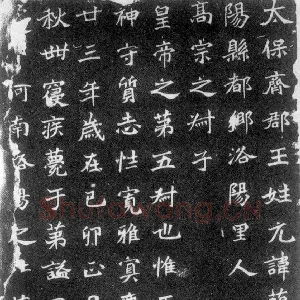 太保齊郡王姓元諱
陽縣都鄉洛陽里人
高宗之叔子
皇帝之第五叔也惟
神守質志性寬雅寘
廿三年歲在己卯正
秋卌寢疾薨于第謚
河南洛陽之